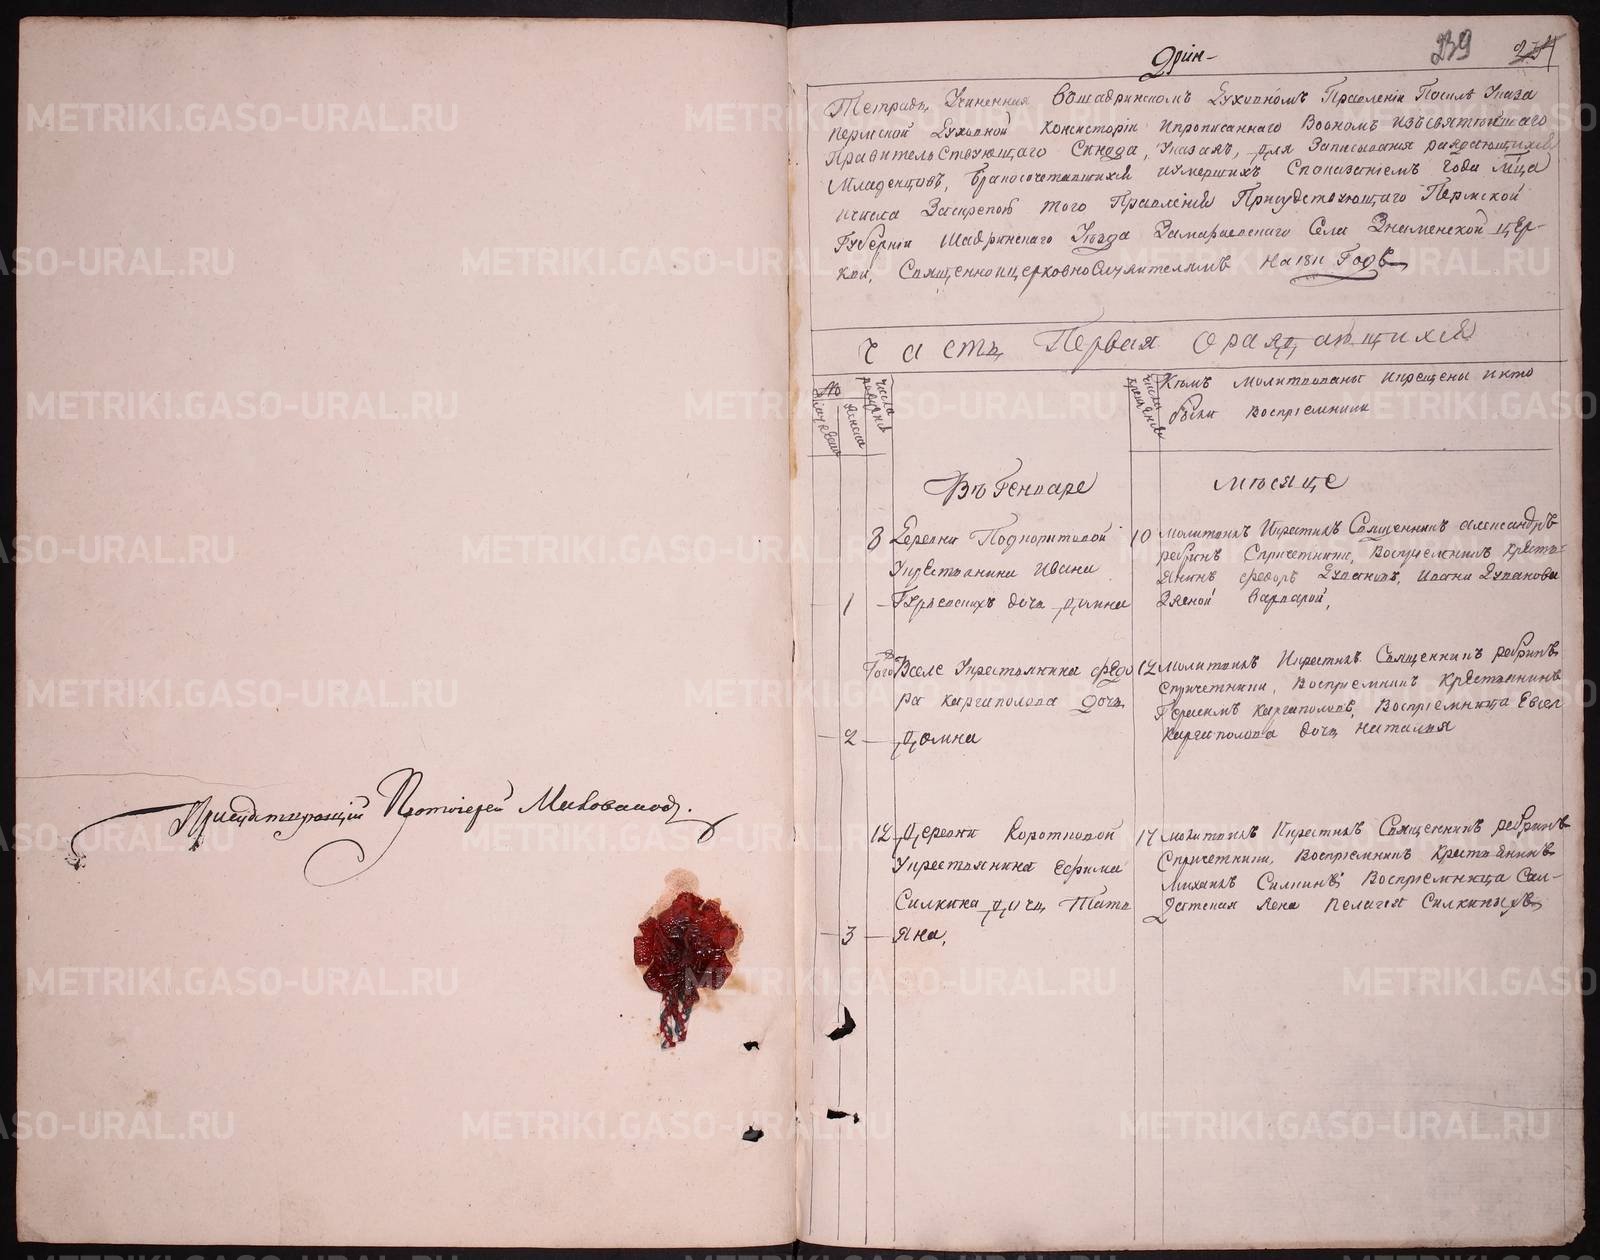 Присутствующій Протоіерей
один-
239
Тетрадь Учиненная Вошадринскомъ Духовномъ Правленіи Посилѣ Указа
Пермской Духовной Консисторіи Ипрописаннаго Воономъ изъсвятѣйшаго
Правительствующаго Синода, Указахъ, для Записыванія раждающихся
Младенцовъ, бракосочетавшихся иумершихъ Споказаніемъ Года М҃ца
Ичисла Заскрепою того Правленія Присудствующаго Пермской
Губерніи Шадринскаго Уѣзда Замараевскаго Села Знаменской Цер-
кви, Священноицерковнослужителямъ На 1811 Годъ
Часть Первая ораждающихся
№
мужеска
женска
число рожденія
число крещенія
Кѣмъ Молитвованы Икрещены Икто
были Воспріемники
Въ Генваре
Мѣсяце
8 Деревни
Укрестьянина Ивана
1 дочь Домна
10 Молитвилъ Икрестилъ Священникъ Александръ
ребринъ Спричетники, Воспріемникъ Кресть-
янинъ Федоръ Ивана
Женой Варварой,
Того 8 Вселе Укрестьянина федо
ра каргаполова Дочь
2 Домна
12 Молитвилъ Икрестилъ Священникъ ребринъ
Спричетники, Воспріемникъ Крестьянинъ
Герасимъ Каргаполовъ, Воспріемница Евсея
Каргаполова дочь Наталья
12 Деревни Коротковой
Укрестьянина Ефима
Силкина дочь Татья
3 яна,
17 Молитвилъ Икрестилъ Священникъ ребринъ
Спричетники, Воспріемникъ Крестьянинъ
Михаилъ Силкинъ, Воспріемница Сол-
датская жена Пелагея Силкиныхъ
METRIKI.GASO-URAL.RU